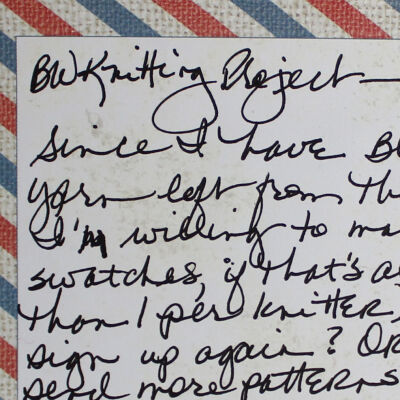 BW Knitting Project—
Since I have B
yarn left from th
I'm willing to ma
swatches, if that's a
than 1 per knitter,
sign up again? OR
send more patterns